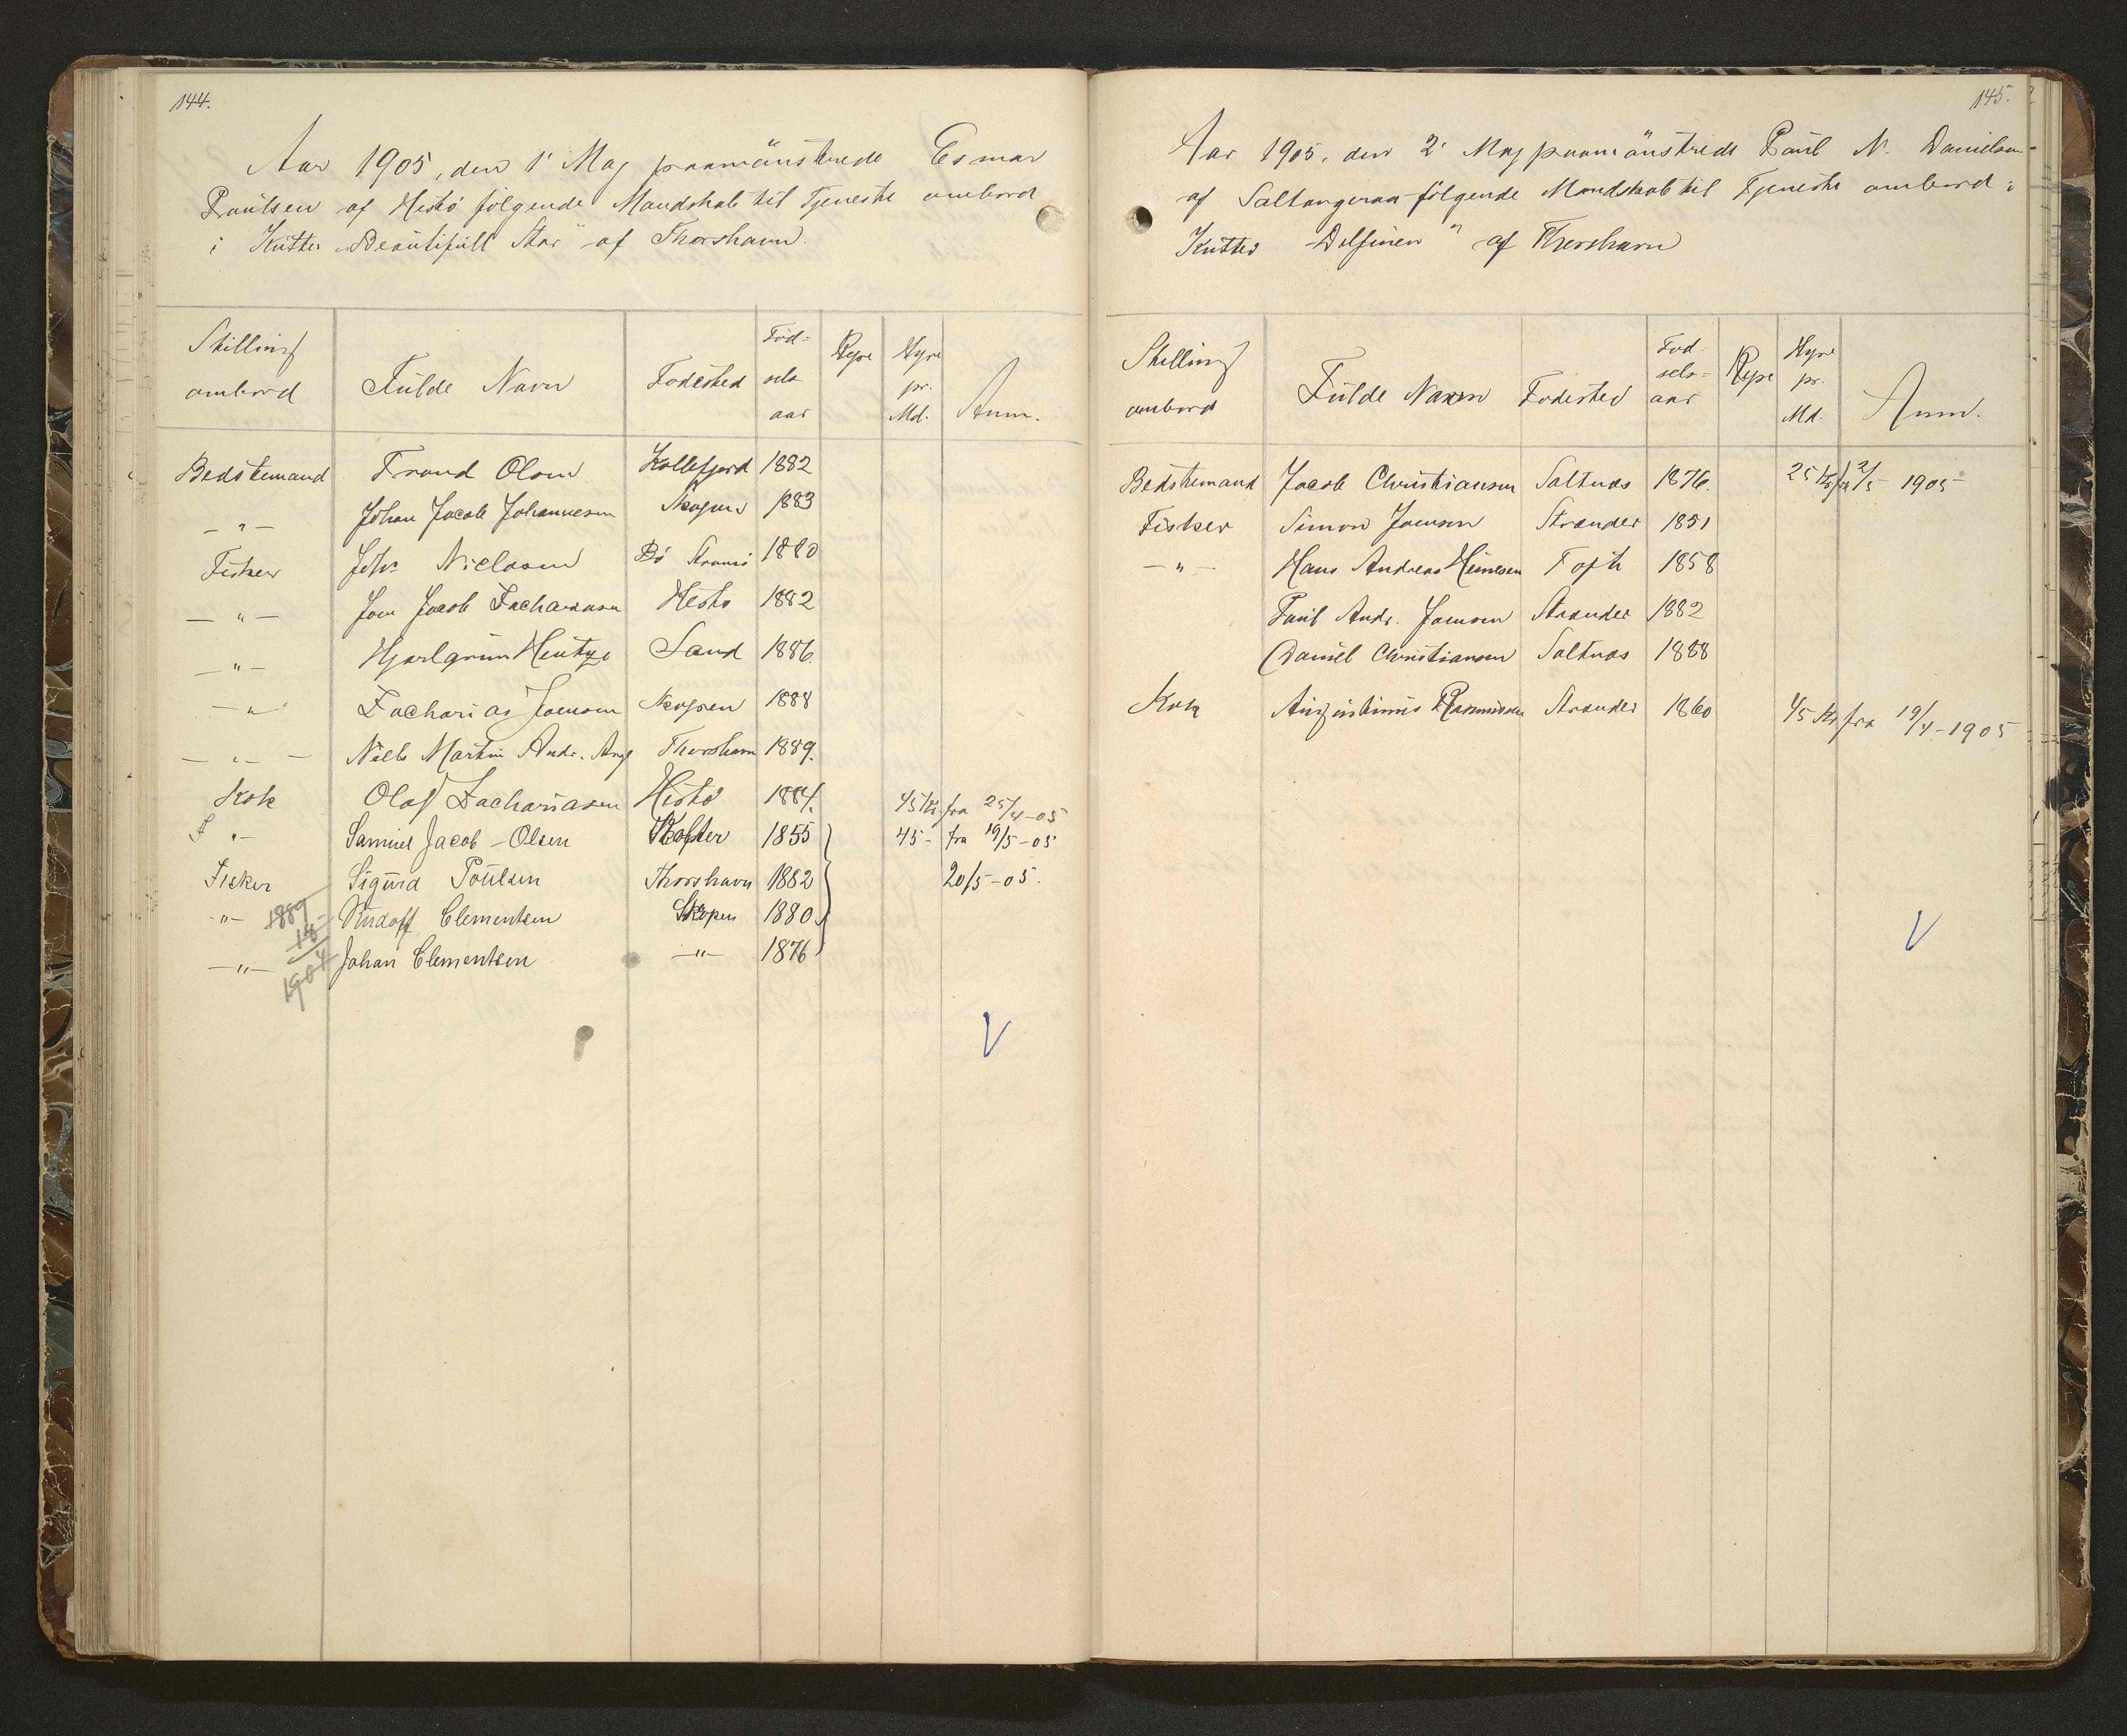 144.
Aar 1905, den 1' Maj paamönstrede Esmar
Paulsen af Hestö følgende Mandskab til Tjeneste ombord
i Kutter „Beautifull Star" af Thorshavn.
Stilling ombord Fulde Navn Fodested Föd-sels aar Rejse Hyre pr. Md. Anm.
Bedstemand Trond Olsen Kollefjord 1882
— " — Johan Jacob Johannesen Skopen 1883
Fisker Joh. Nielsen Bö Strömö 1880
— " — Joen Jacob Zachariasen Hestö 1882
— " — Hjarlgrim Hentze Sand 1886.
— " — Zacharias Joensen Skopen 1888
— " — Niels Martin Andr. Ang Thorshavn 1889.
Kok Olaf Zachariasen Hestö 1884. 45 Kr. fra 25/4-05
F " - Samuel Jacob Olsen Kolter 1855 45 - fra 19/5-05
Fisker Sigurd Poulsen Thorshavn 1882 20/5-05.
-"- Rudolf Clementsen Skopen 1880
—"— Johan Clementsen —"— 1876
1889
18
1904
V
145.
Aar 1905, den 2' Maj paamönstrede Paul N. Danielsen
af Saltangeraa følgende Mandskab til Tjeneste ombord i
Kutter „Delfinen" af Thorshavn
Stilling ombord Fulde Navn Fodested Fod-sels-aar Rejse Hyre pr. Md. Anm.
Bedstemand Jacob Christiansen Saltnæs 1876. 25 Kr fra 2/5 1905
Fisker Simon Joensen Strænder 1851
— " — Hans Andreas Heinesen Toft 1858
Paul Andr. Joensen Strænder 1882
Daniel Christiansen Saltnæs 1888
Kok Augustinus Rasmussen Strænder 1860 45 Kr fra 19/4-1905
V